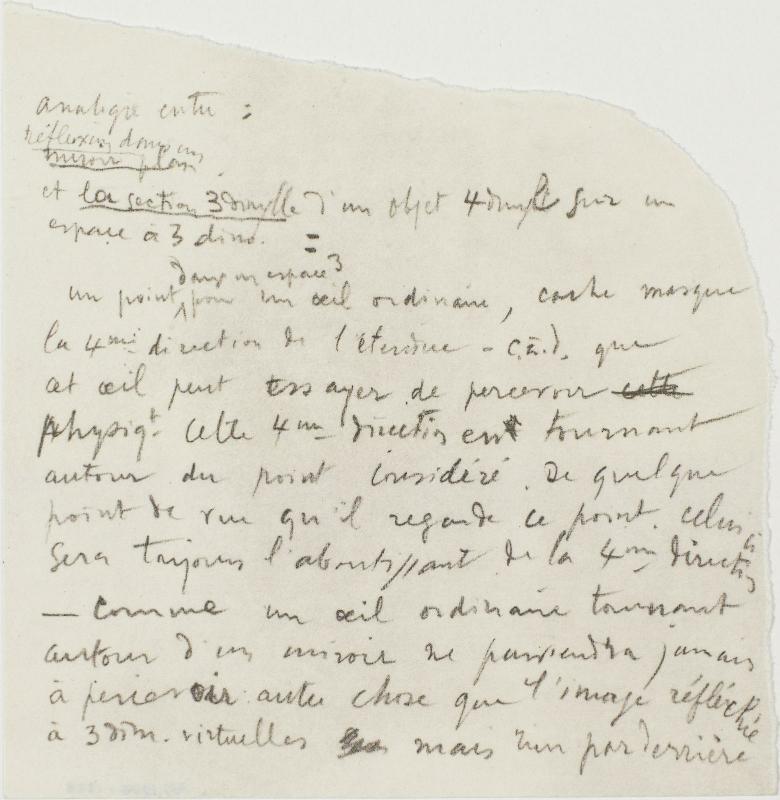 analogie entre :
réflexion dans un
miroir plan
et la section 3dimlle d'un objet 4dimll sur un
espace à 3 dims. =
dans un espace 3
un point, pour un œil ordinaire, cache masque
la 4me direction de l'étendue – c.à.d. que
cet œil peut essayer de percevoir cette
physiqt cette 4me direction en tournant
autour du point considéré. De quelque
point de vue qu'il regarde ce point, celui ci
sera toujours l'aboutissant de la 4me direction
— comme un œil ordinaire tournant
autour d'un miroir ne parviendra jamais
à percevoir autre chose que l'image réfléchie
à 3 dim. virtuelles mais rien par derrière